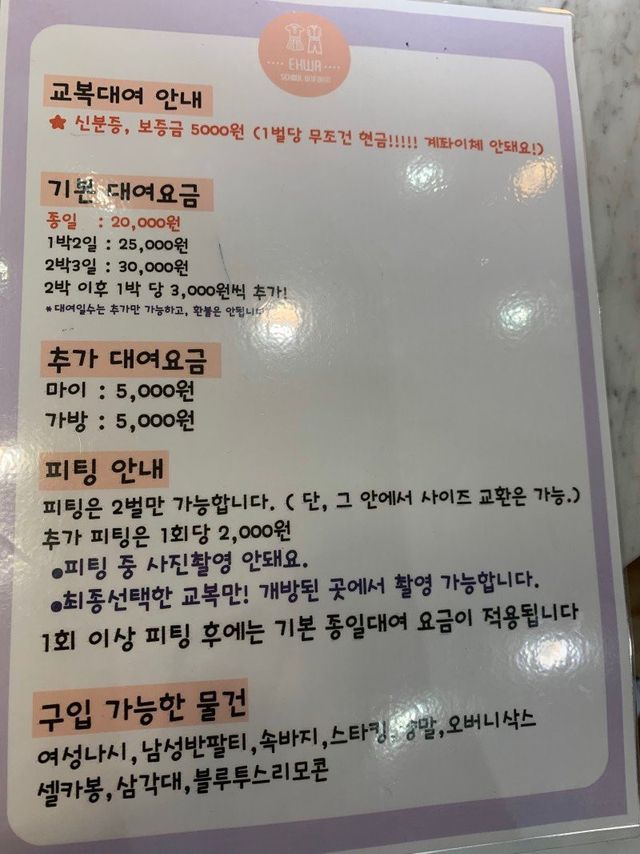 EHWA
교복대여 안내
★ 신분증, 보증금 5000원 (1벌당 무조건 현금!!!!! 계좌이체 안돼요!)
기본 대여요금
종일 : 20,000원
1박2일 : 25,000원
2박3일 : 30,000원
2박 이후 1박 당 3,000원씩 추가!
*대여일수는 추가만 가능하고, 환불은 안됩니다
추가 대여요금
마이 : 5,000원
가방 : 5,000원
피팅 안내
피팅은 2벌만 가능합니다. ( 단, 그 안에서 사이즈 교환은 가능.)
추가 피팅은 1회당 2,000원
●피팅 중 사진촬영 안돼요.
●최종선택한 교복만! 개방된 곳에서 촬영 가능합니다.
1회 이상 피팅 후에는 기본 종일대여 요금이 적용됩니다
구입 가능한 물건
여성나시,남성반팔티,속바지,스타킹,양말,오버니삭스
셀카봉,삼각대,블루투스리모콘